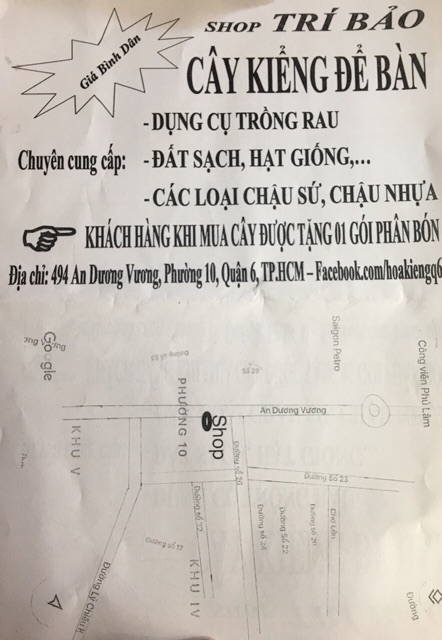 SHOP TRÍ BẢO
Giá Bình Dân
CÂY KIỂNG ĐỂ BÀN
Chuyên cung cấp:
-DỤNG CỤ TRỒNG RAU
-ĐẤT SẠCH, HẠT GIỐNG,...
-CÁC LOẠI CHẬU SỨ, CHẬU NHỰA
KHÁCH HÀNG KHI MUA CÂY ĐƯỢC TẶNG 01 GÓI PHÂN BÓN
Địa chỉ: 494 An Dương Vương, Phường 10, Quận 6, TP.HCM – Facebook.com/hoakiengq6
Google
Saigon Petro
Công viên Phú Lâm
An Dương Vương
PHƯỜNG 10
Shop
KHU V
KHU IV
Đường số 23
Đường Số 26
Đường Số 24
Đường Số 22
Đường số 20
Chợ Lớn
Đường số 32
Đường